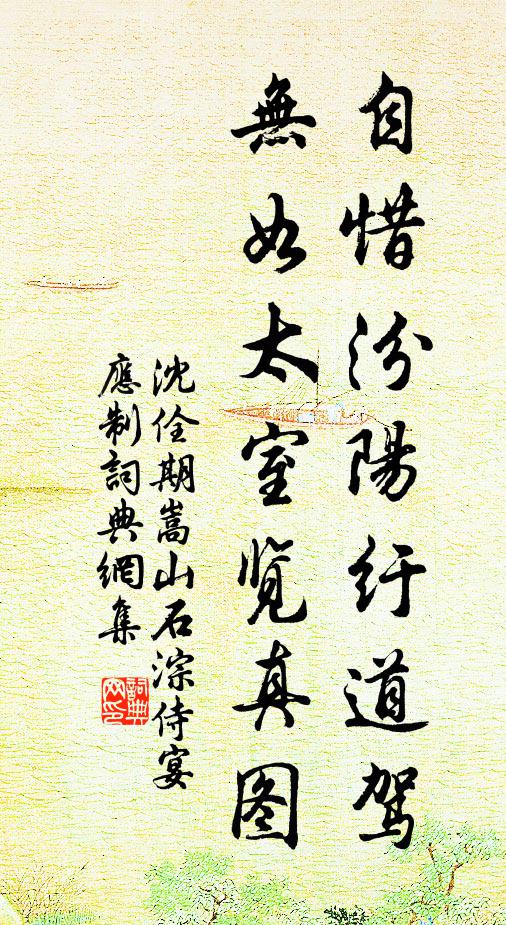 自惜汾陽纡道駕
無如太室覽真图
沈佺期嵩山石淙侍宴
應制詞典網集
詞典
网印